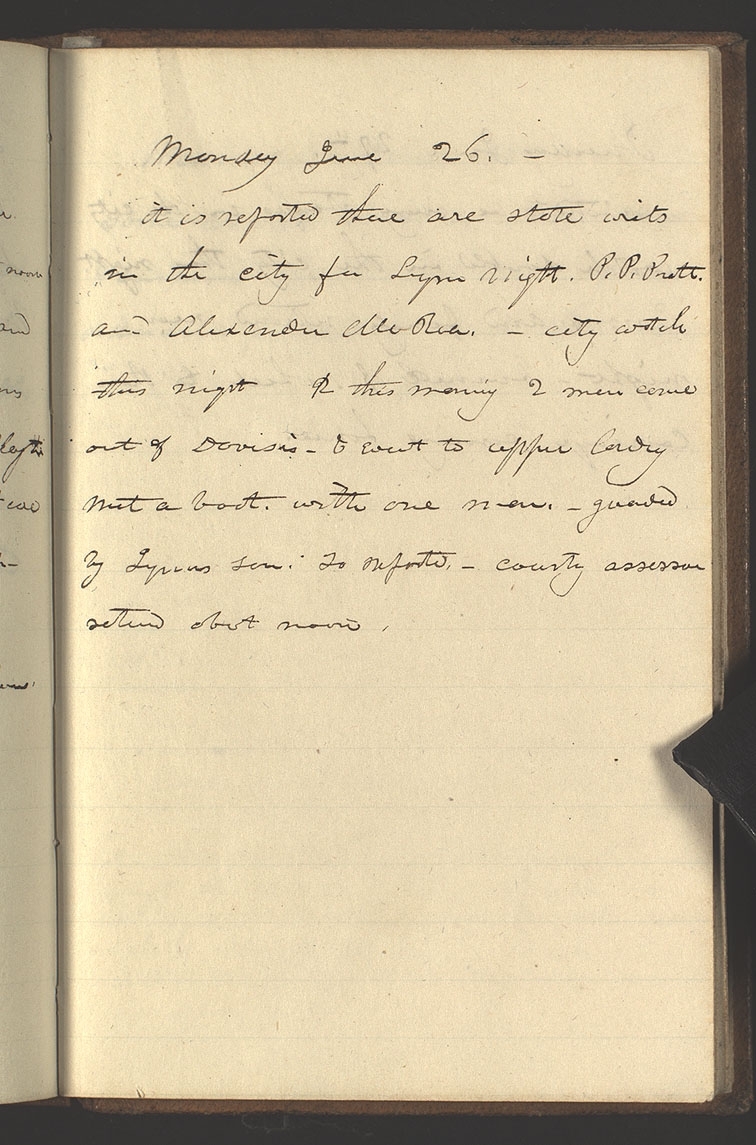 Monday June 26. –
it is reported there are state writs
in the city for Lyn Wight. P. P. Pratt.
and Alexander McRea. – city watch
this night & this morning 2 men come
out of Davises – & went to upper
met a boat. with one man. – guarded
by Lynus son. so reported. – county assessor
returnd about noon.